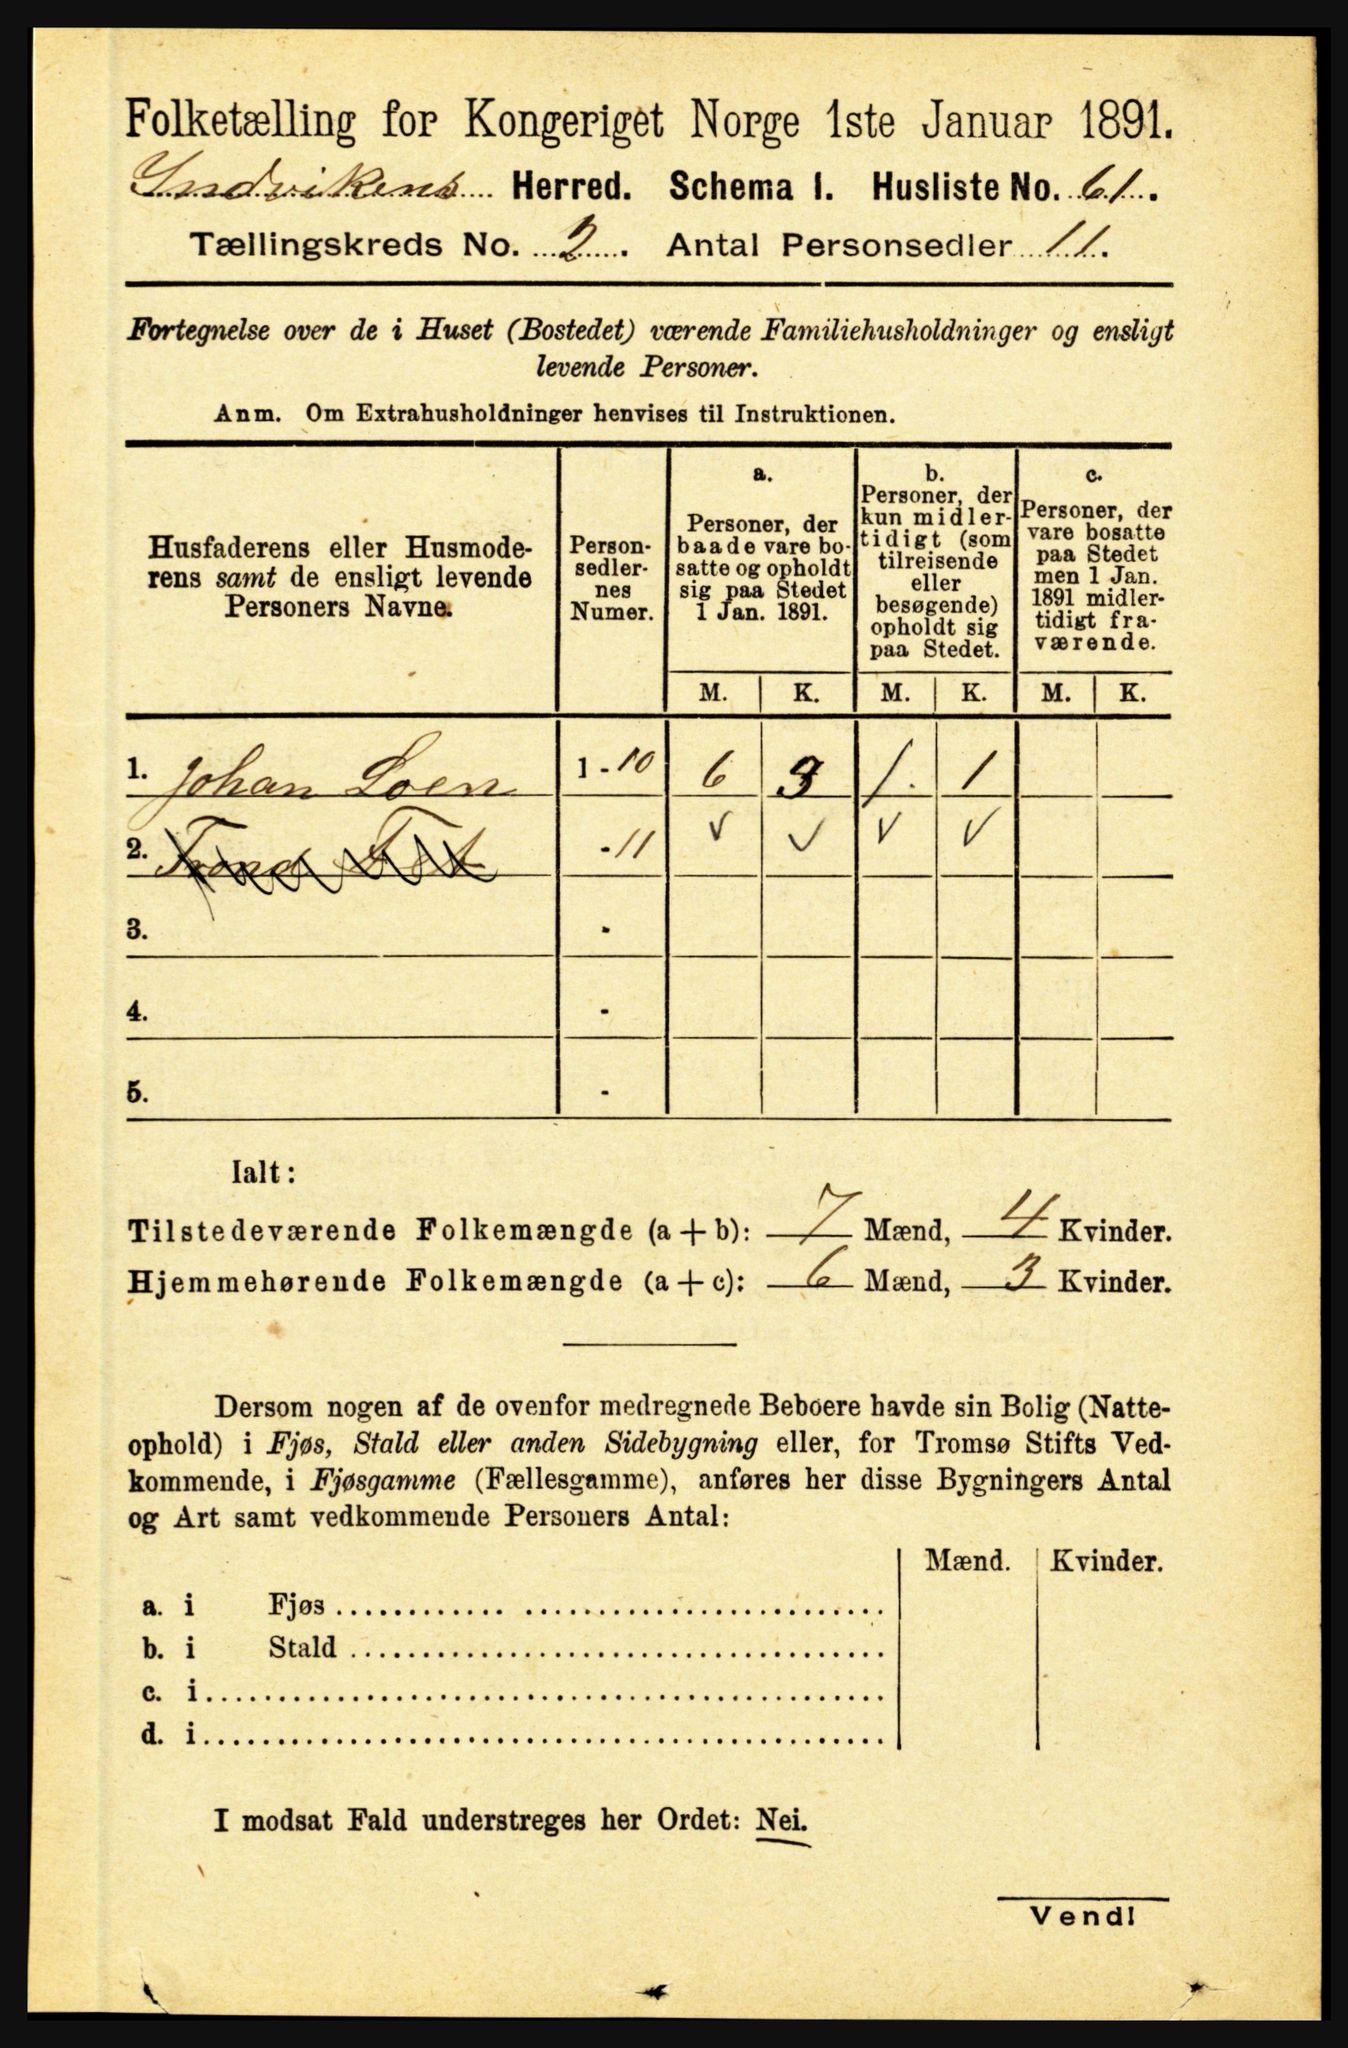 Folketælling for Kongeriget Norge 1ste Januar 1891.
Indvikens Herred. Schema I. Husliste No. 61.
Tællingskreds No. 2. Antal Personsedler 11.
Fortegnelse over de i Huset (Bostedet) værende Familiehusholdninger og ensligt
levende Personer.
Anm. Om Extrahusholdninger henvises til Instruktionen.
Husfaderens eller Husmode-
rens samt de ensligt levende
Personers Navne.
Person-
sedler-
nes
Numer.
a.
Personer, der
baade vare bo-
satte og opholdt
sig paa Stedet
1 Jan. 1891.
b.
Personer, der
kun midler-
tidigt (som
tilreisende
eller
besøgende)
opholdt sig
paa Stedet.
c.
Personer, der
vare bosatte
paa Stedet
men 1 Jan.
1891 midler-
tidigt fra-
værende.
M. K. M. K. M. K.
1. Johan Loen 1 - 10 6 3 1. 1
2. Trond - 11 √ √ √ √
3. -
4. -
5. -
Ialt:
Tilstedeværende Folkemængde (a + b): 7 Mænd, 4 Kvinder.
Hjemmehørende Folkemængde (a + c): 6 Mænd, 3 Kvinder.
Dersom nogen af de ovenfor medregnede Beboere havde sin Bolig (Natte-
ophold) i Fjøs, Stald eller anden Sidebygning eller, for Tromsø Stifts Ved-
kommende, i Fjøsgamme (Fællesgamme), anføres her disse Bygningers Antal
og Art samt vedkommende Personers Antal:
Mænd. Kvinder.
a. i Fjøs
b. i Stald
c. i
d. i
I modsat Fald understreges her Ordet: Nei.
Vend!